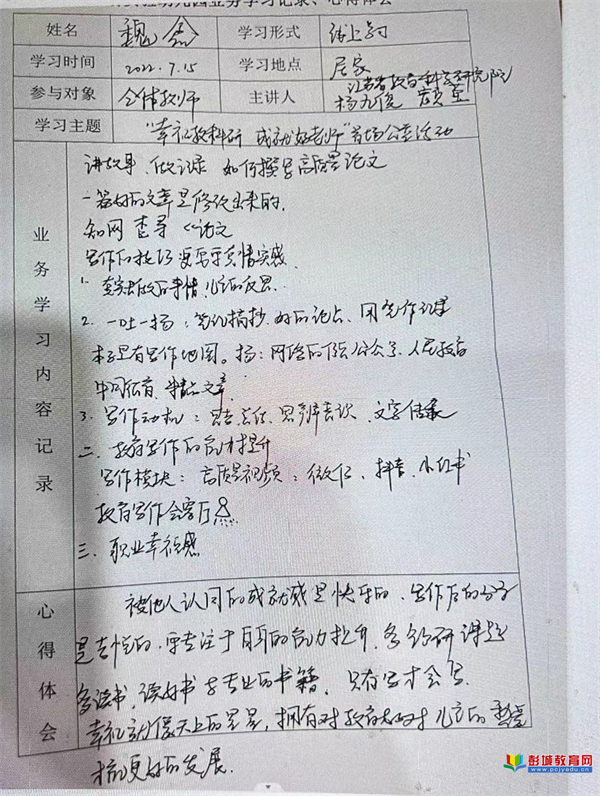 幼儿园业务学习记录、心得体会
姓名 魏 学习形式 线上学习
学习时间 2022.7.15 学习地点 居家
参与对象 全体教师 主讲人 江苏省教育科学研究院
杨九俊
学习主题 "幸福教科研 成就好老师"首场公益活动
业务学习内容记录
讲故事、做记录 如何撰写高质量论文
一篇好的文章是修改出来的。
知网 查寻 论文
写作的技巧 要写乎真情实感
1. 做的事情,儿童的反思
2. 一吐一扬:笔记摘抄 好的论点、用
本子里有写作地图。扬:网络的 公众号、人民教育
中国 文章
3. 写作动机: 责任、思辨意识、文字传承
二、教育写作的能力提升
写作模块:高质量视频:微信、抖音、小红书
教育写作会客厅
三、职业幸福感
心得体会
被他人认同的成就感是快乐的、写作后的分享
是喜悦的,要专注于自身的能力提升,多 研课题
多读书、读好书 专业的书籍,只有写才会写
幸福就像天上的星星,拥有对教育 对儿童的
更好的发展.
彭城教育网
www.pcjyedu.cn